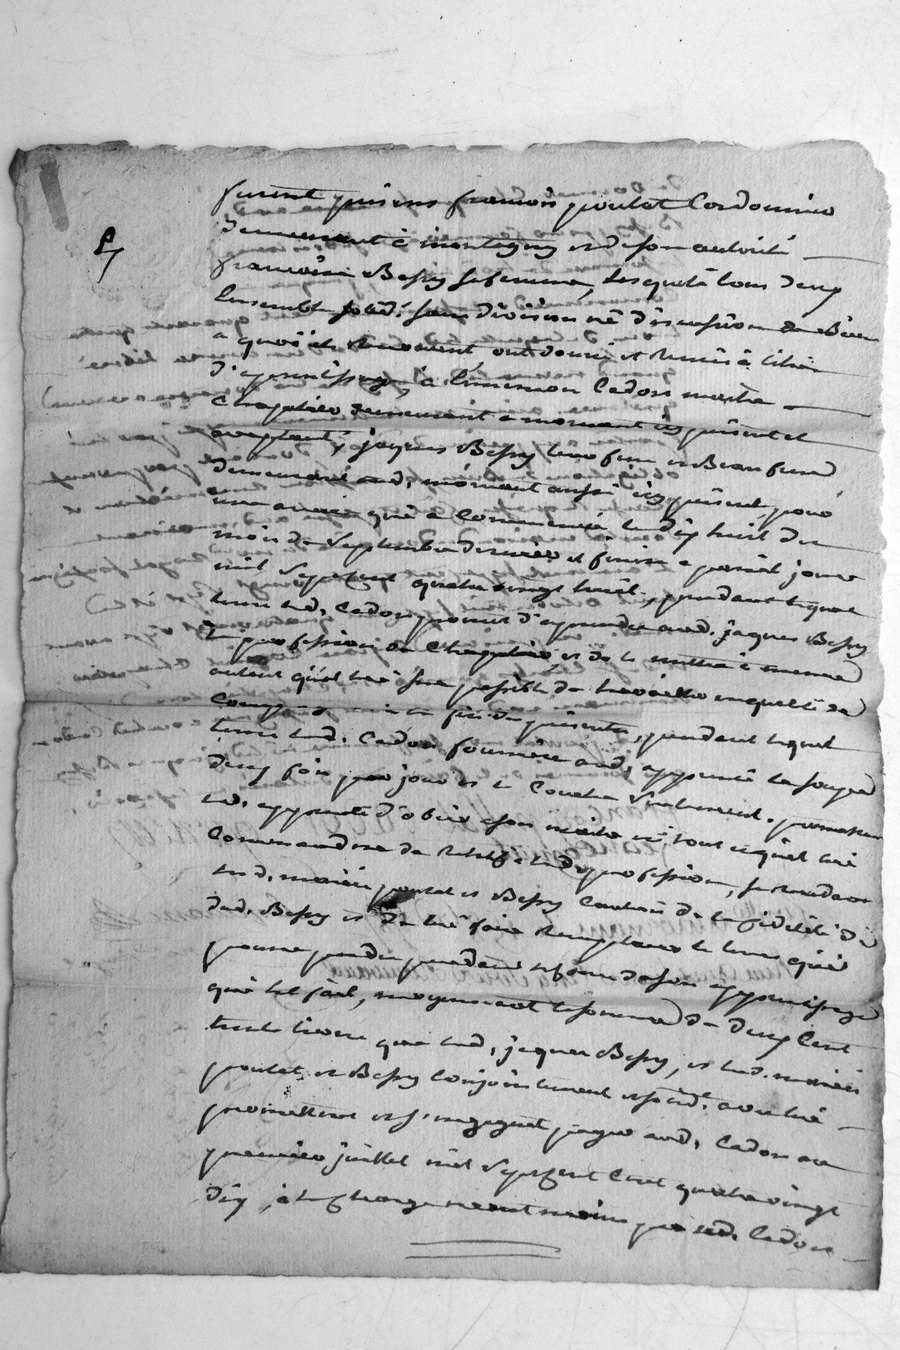 furent présens françois poulat Cordonnier
demeurant à montagny et de son autorité
françoise Bessy sa femme, lesquels tous deux
Ensemble solid.t sans division ni discussion de Biens
a quoi ils renoncent, ont donné et remis à titre
d'aprentissage, à Ennemon Cadon maitre
Chapelier demeurant a mornant icy présent et
acceptant, jacques Bessy leur fils et Beau frere
demeurant aud. mornant aussi icy présent, pour
une année qui a Commencé le dix huit du
mois de Septembre dernier et finira a pareil jour
mil sept cent quatre vingt huit, pendant lequel
tems led. Cadon promet d'aprendre aud. jacques Bessy
la profession de Chapelier et de le mettre à même
autant qu'il lui sera possible de travailler en qualité de
Compagnon a la fin du présent, pendant lequel
tems led. Cadon fournira aud. apprenti la soupe
deux fois par jour et le Coucher Seulement. promettant
led. apprenti d'obéir a son maitre en tout ce qu'il lui
Commandera de relatif a lad. profession, se rendant
lesd. mariés poulat et Bessy Cautions de la fidélité du
dud. Bessy et de lui faire remplacer le tems qu'il
pourra perdre pendant le cours de son apprentissage
qui est fait, moyennant la somme de deux Cent
trente livres que led. jacques Bessy, et lesd. mariés
poulat et Bessy Conjointement et solid.t avec lui
promettent et s'engagent payer aud. Cadon au
premier juillet mil sept Cent quatre vingt
dix, à la Charge néantmoins par led. Cadon